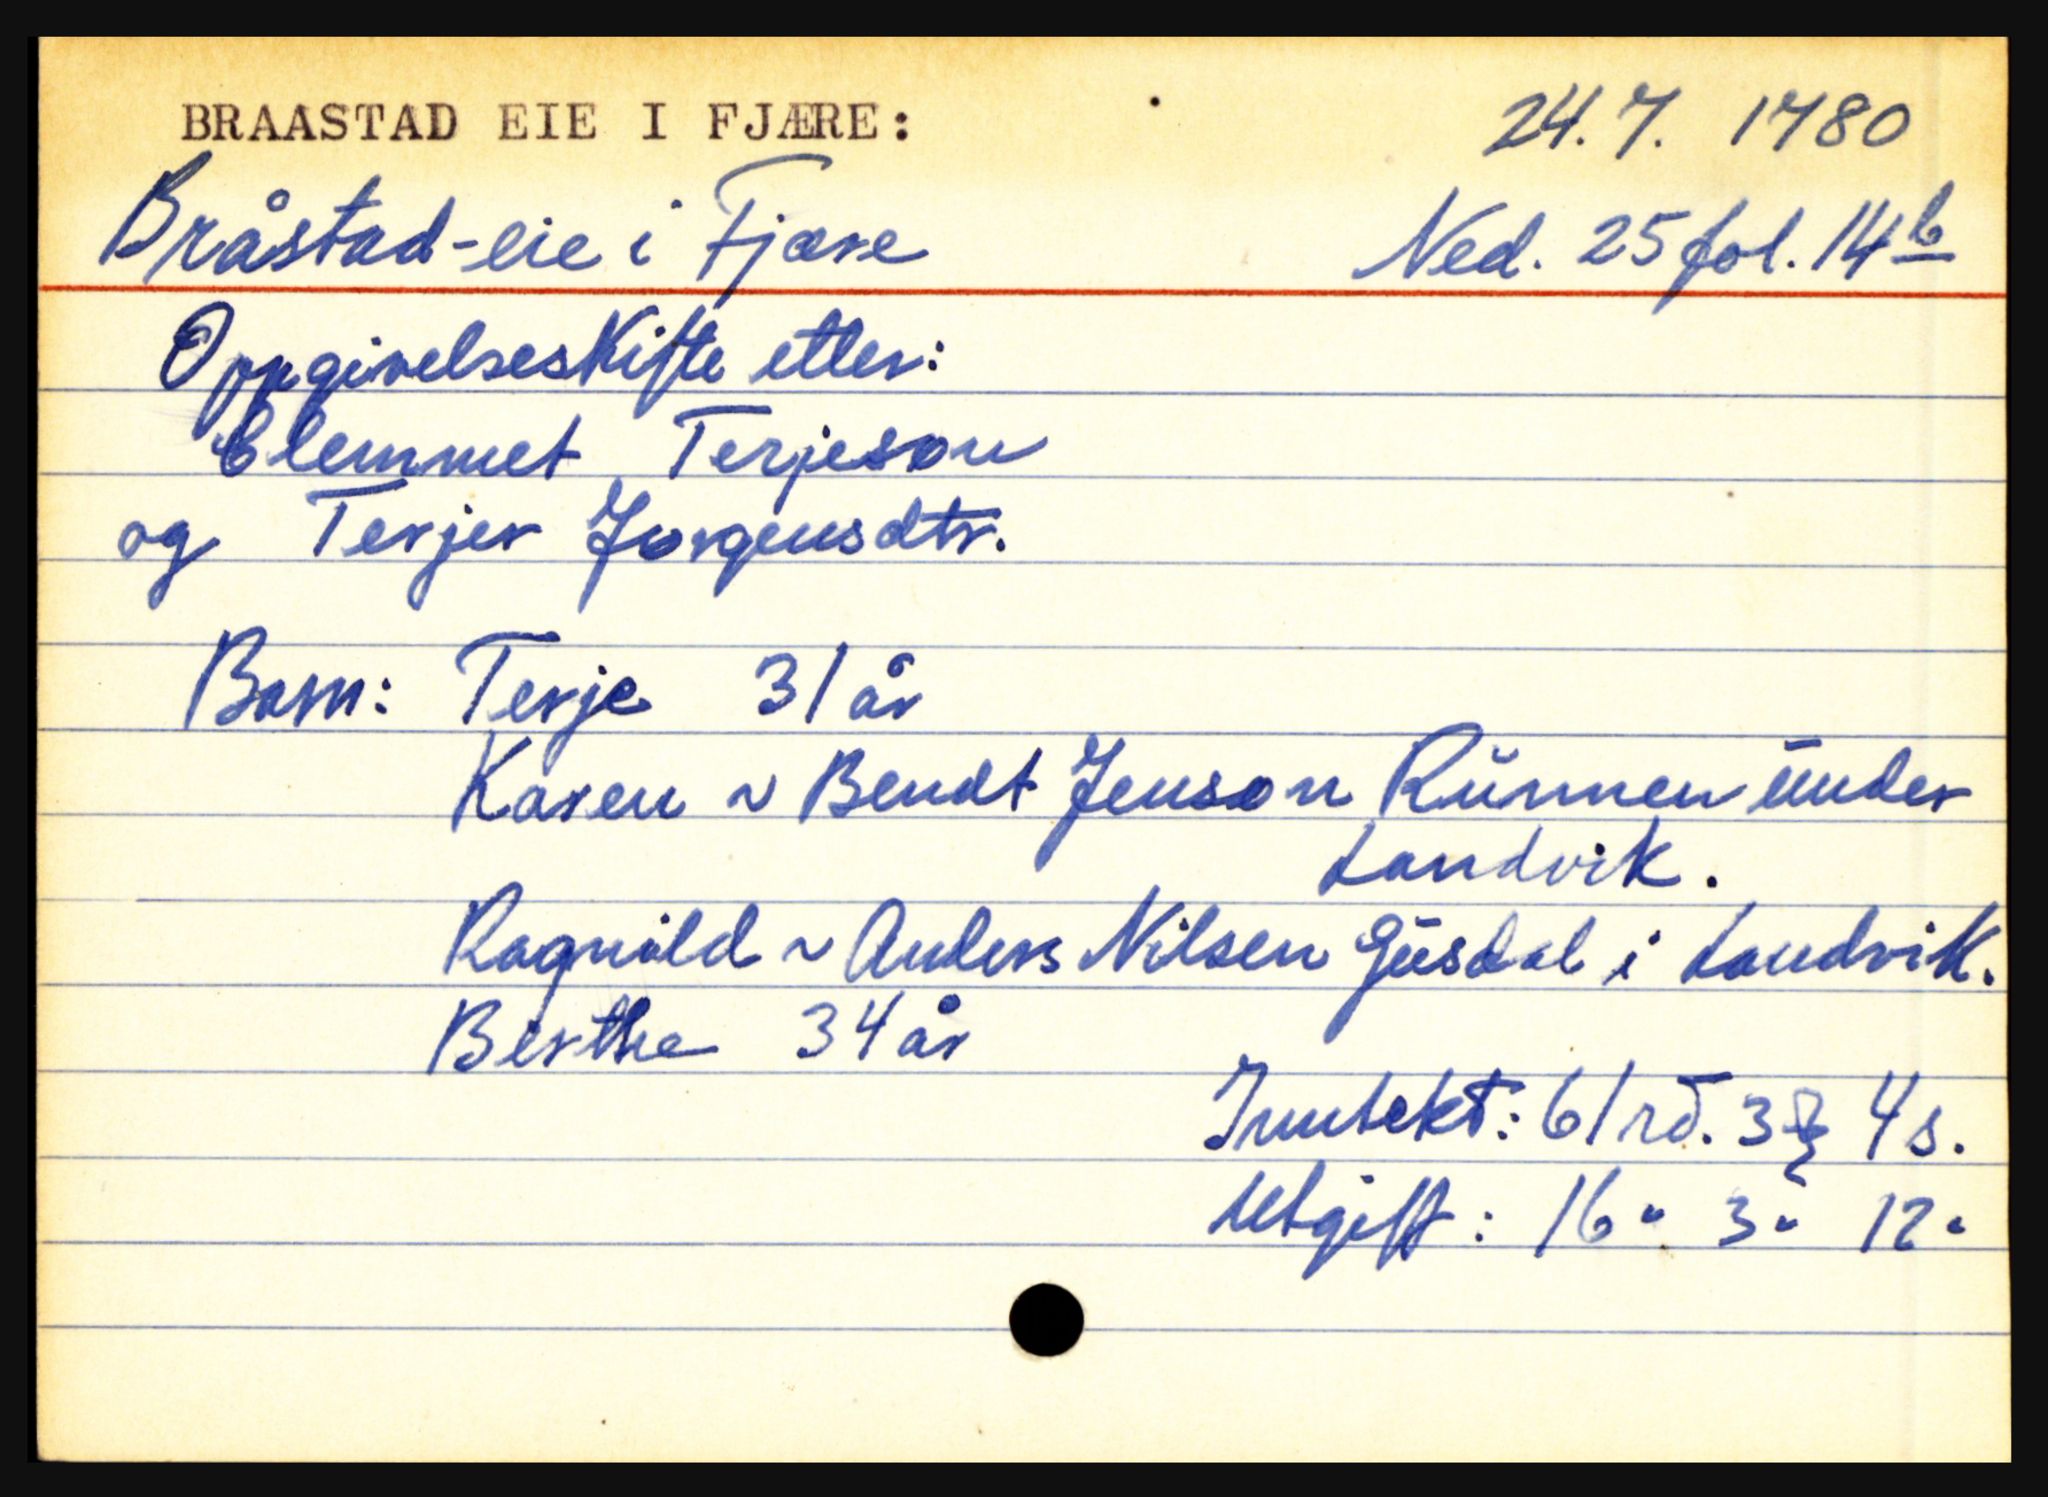 BRAASTAD EIE I FJÆRE:
24.7. 1780
Bråstad-eie i Fjære
Ned. 25 fol. 14 b
Oppgivelseskifte etter:
Clemmet Terjeson
og Terjer Jorgensdtr.
Barn: Terje 31 år
Karen ~ Bendt Jenson Rünnen ünder
Landvik.
Ragnild ~ Anders Nilsen Güsdal i Landvik.
Berthe 34 år
Inntekt: 61 rd. 3 4 s.
Utgift: 16 " 3 " 12 "